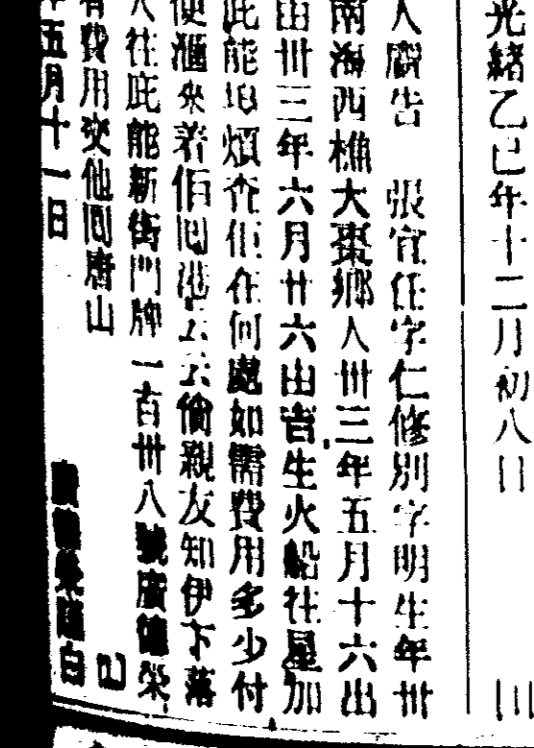 光緒乙巳年十二月初八日
人廣告 張宜任字仁修別字明生年卅
南海西樵大棗鄉人卅三年五月十六出
由卅三年六月廿六由吉生火船往星加
此能埠煩查佢在何處如需費用多少付
便滙來着佢回港 倘親友知伊下落
往庇能新街門牌一百卅八號廣德榮
有費用交他回唐山
五月十一日 廣德榮隆白